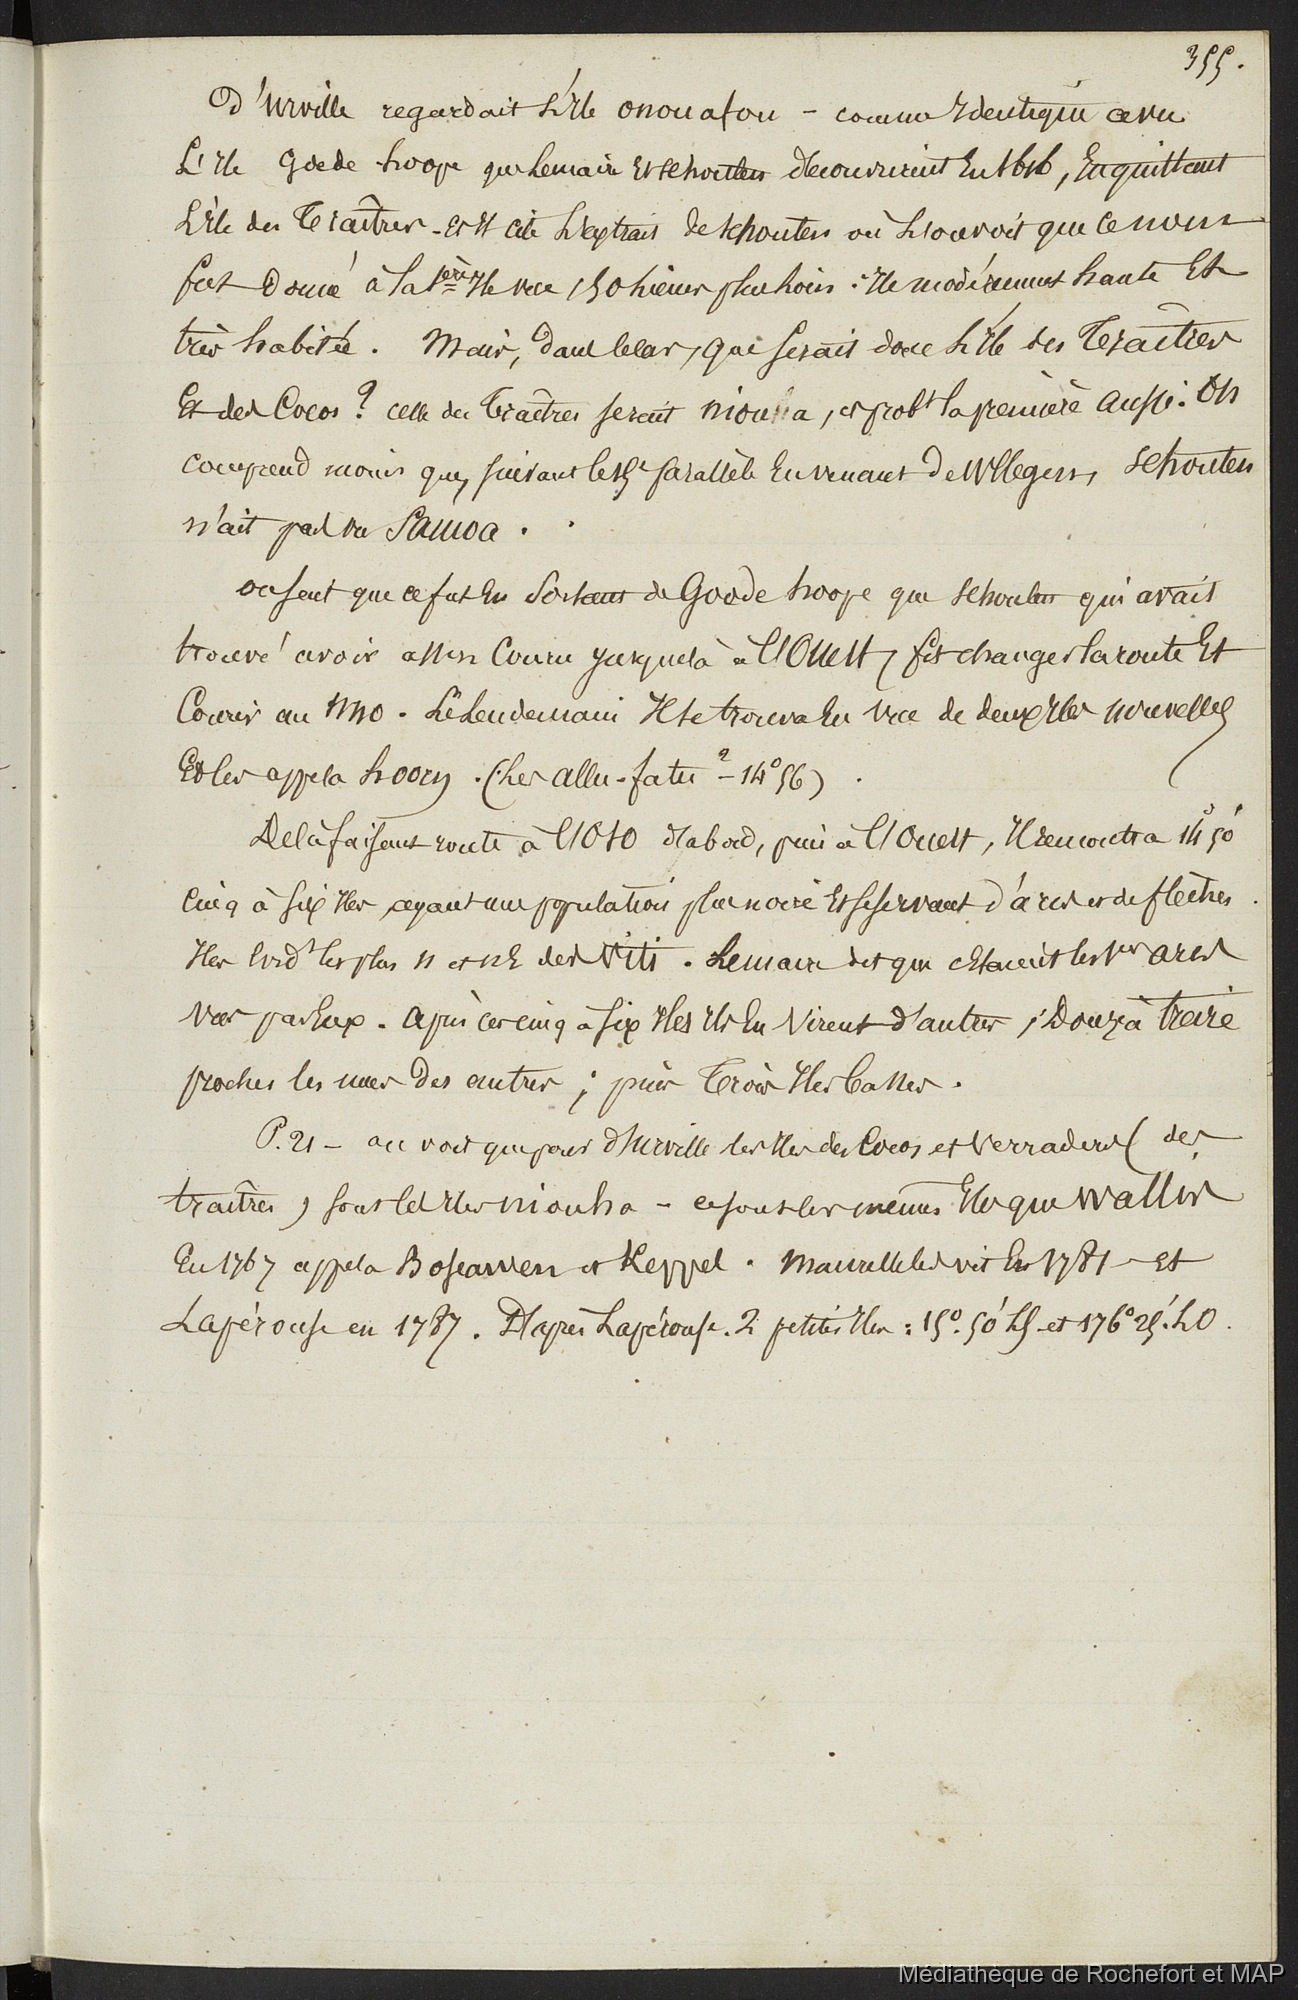 355.
D'Urville regardait l'Ile onouafou - comme Identique avec
L'Ile Goede hoope que Lemaire Et Schouten decouvrirent En 1616, En quittant
L'Ile des Traîtres - et Il cite L'extrait de Schouten où L'on voit que ce nom
fut Donné à la 1ère Ile vue, 30 lieues plus loin : Ile modérément haute Et
très habitée. Mais, dans le cas, que serait donc L'Ile des Traîtres
Et des Cocos ? celle des Traîtres serait niouha, et probt la première aussi. On
comprend moins que, suivant le 15e parallèle En venant de Wllegen, Schouten
n'ait pas vu Samoa.
on sent que ce fut En Sortant de Goode hoope que Schouten qui avait
trouvé avoir assez Couru jusque là à l'Ouest, fit changer la route Et
Courir au NNO. Le Lendemain Il se trouva En vue de deux Iles nouvelles
Et les appela hoorn. (Les allu-fatu ? - 14° 56)
De là faisant route à l'OSO d'abord, puis à l'Ouest, Il rencontra 14° 50'
cinq à six Iles ayant une population plus noire Et se servant d'arcs et de flèches.
Iles Evidt les plus N et NE des Viti. Lemaire dit que c'étaient les 1ers arcs
vus par Eux. après ces cinq à six Iles Ils En Virent d'autres ; Douze à treize
proches les unes des autres ; puis Trois Iles basses.
P. 21 - on voit que pour d'Urville les Iles des Cocos et Verraders ( des
traîtres ) sont les Iles niouha - ce sont les mêmes Iles que Wallis
En 1767 appela Boscawen et Keppel. Maurelle les vit En 1781 - et
Lapérouse en 1787. D'après Lapérouse. 2 petites Iles : 15°. 50' LS et 176° 25'. LO.
Médiathèque de Rochefort et MAP